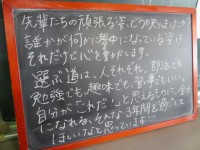 先輩たちの頑張る姿、どう見えましたか
誰かが何かに夢中になっている姿は
それだけで心を動かします。
選ぶ道は、人それぞれ。部活でも
勉強でも、趣味でも、習事でもいい。
自分が「これだ」と思えるものに全力
になれる、そんな3年間を過ごして
ほしいなと思っています…